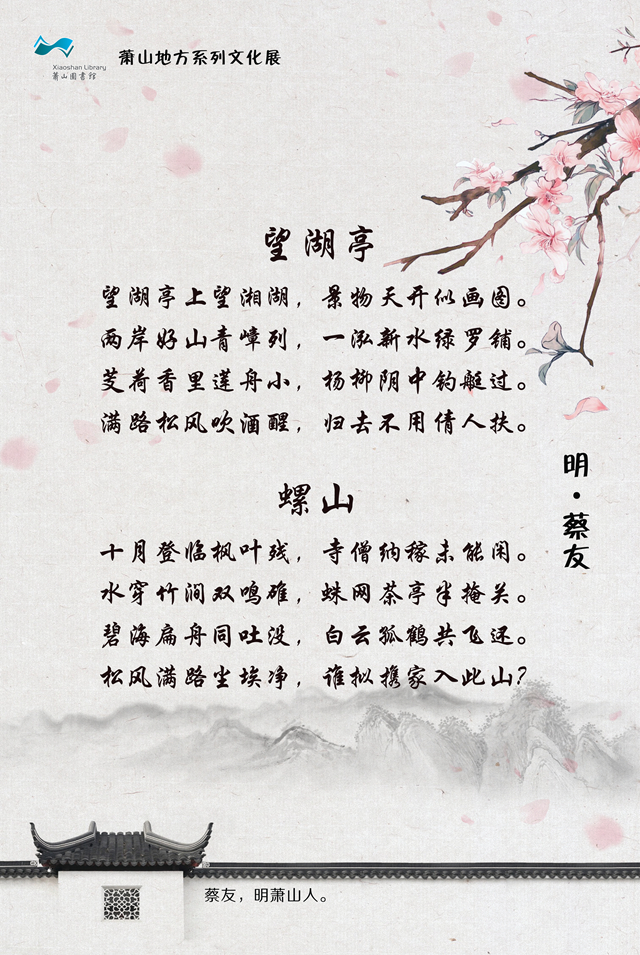 Xiaoshan Library
萧山图书馆
萧山地方系列文化展
望湖亭
望湖亭上望湘湖，景物天开似画图。
两岸好山青嶂列，一泓新水绿罗铺。
芰荷香里莲舟小，杨柳阴中钓艇过。
满路松风吹酒醒，归去不用倩人扶。
螺山
十月登临枫叶残，寺僧纳稼未能闲。
水穿竹涧双鸣碓，蛛网茶亭半掩关。
碧海扁舟同吐没，白云孤鹤共飞还。
松风满路尘埃净，谁拟携家入此山？
明·蔡友
蔡友，明萧山人。